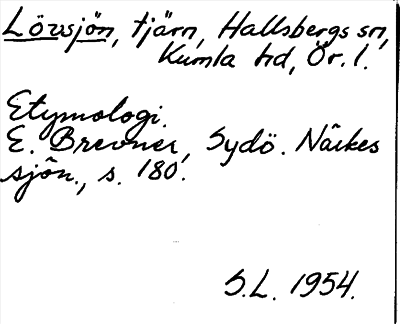 Lövsjön, tjärn, Hallsbergs sn,
Kumla hd, Ör. l.
Etymologi.
E. Brevner, Sydö. Närkes
sjön., s. 180.
S.L. 1954.